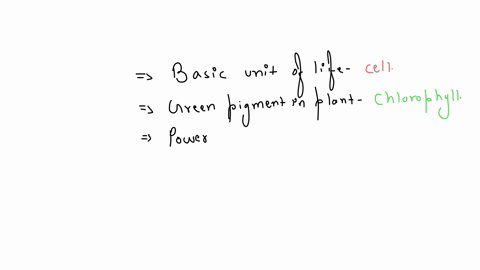 => Basic unit of life- cell.
=> Green pigment in plant- Chlorophyll.
=> Power